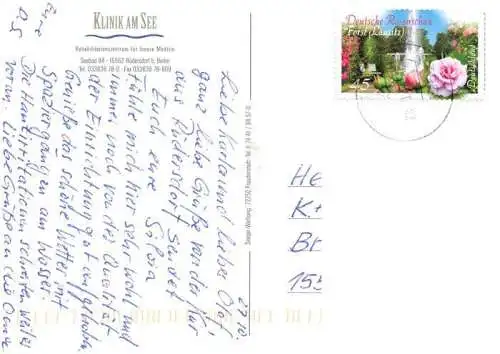 KLINIK AM SEE
Rehabilitationszentrum für Innere Medizin
Seebad 84 - 15562 Rüdersdorf b. Berlin
Tel. 033638/78-0 - Fax 033638/78-600
27.10.
Liebe Karla und lieber Olaf,
ganz liebe Grüße von der Kur
aus Rüdersdorf sendet
Euch eure Silvia
Fühle mich hier sehr wohl und
immer noch von der Qualität
der Einrichtung gut
Genieße das schöne Wetter mit
Spaziergängen am Wasser.
Die Hautirritationen schreiten weiter
voran. Liebe Grüße an die Oma
Eure
Deutsche Rosenschau
Forst (Lausitz)
45
Deutschland
He
K
Br
155